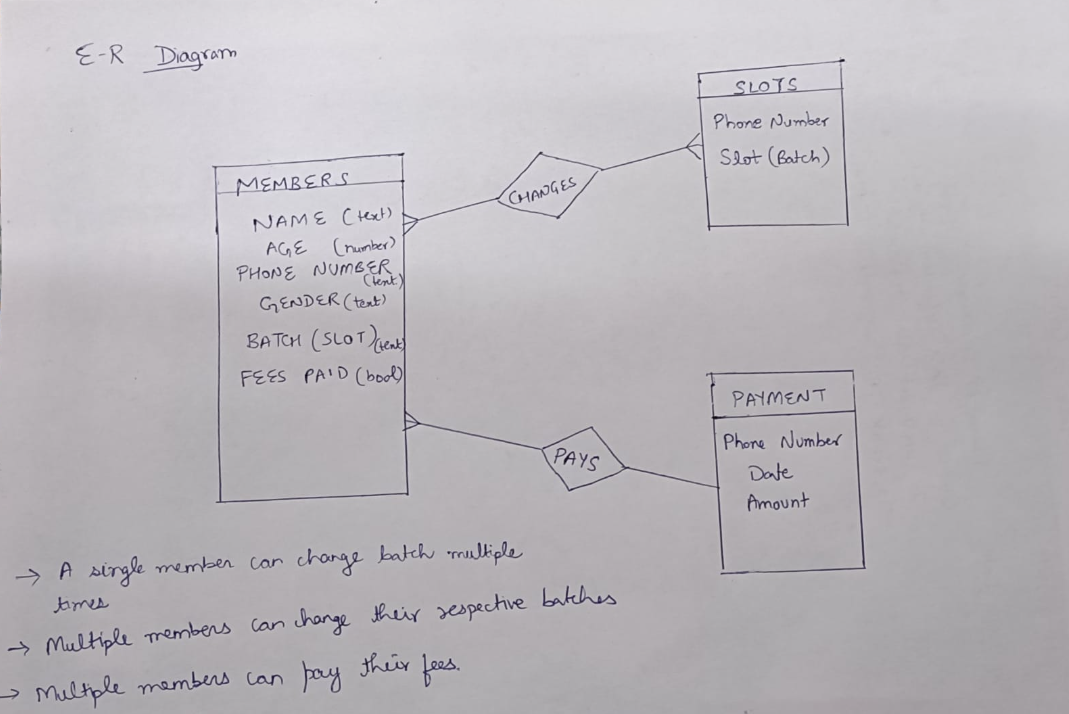 E-R Diagram
SLOTS
Phone Number
Slot (Batch)
CHANGES
MEMBERS
NAME (text)
AGE (number)
PHONE NUMBER
(text)
GENDER (text)
BATCH (SLOT) (text)
FEES PAID (bool)
PAYS
PAYMENT
Phone Number
Date
Amount
→ A single member can change batch multiple
times
→ Multiple members can change their respective batches
→ Multiple members can pay their fees.